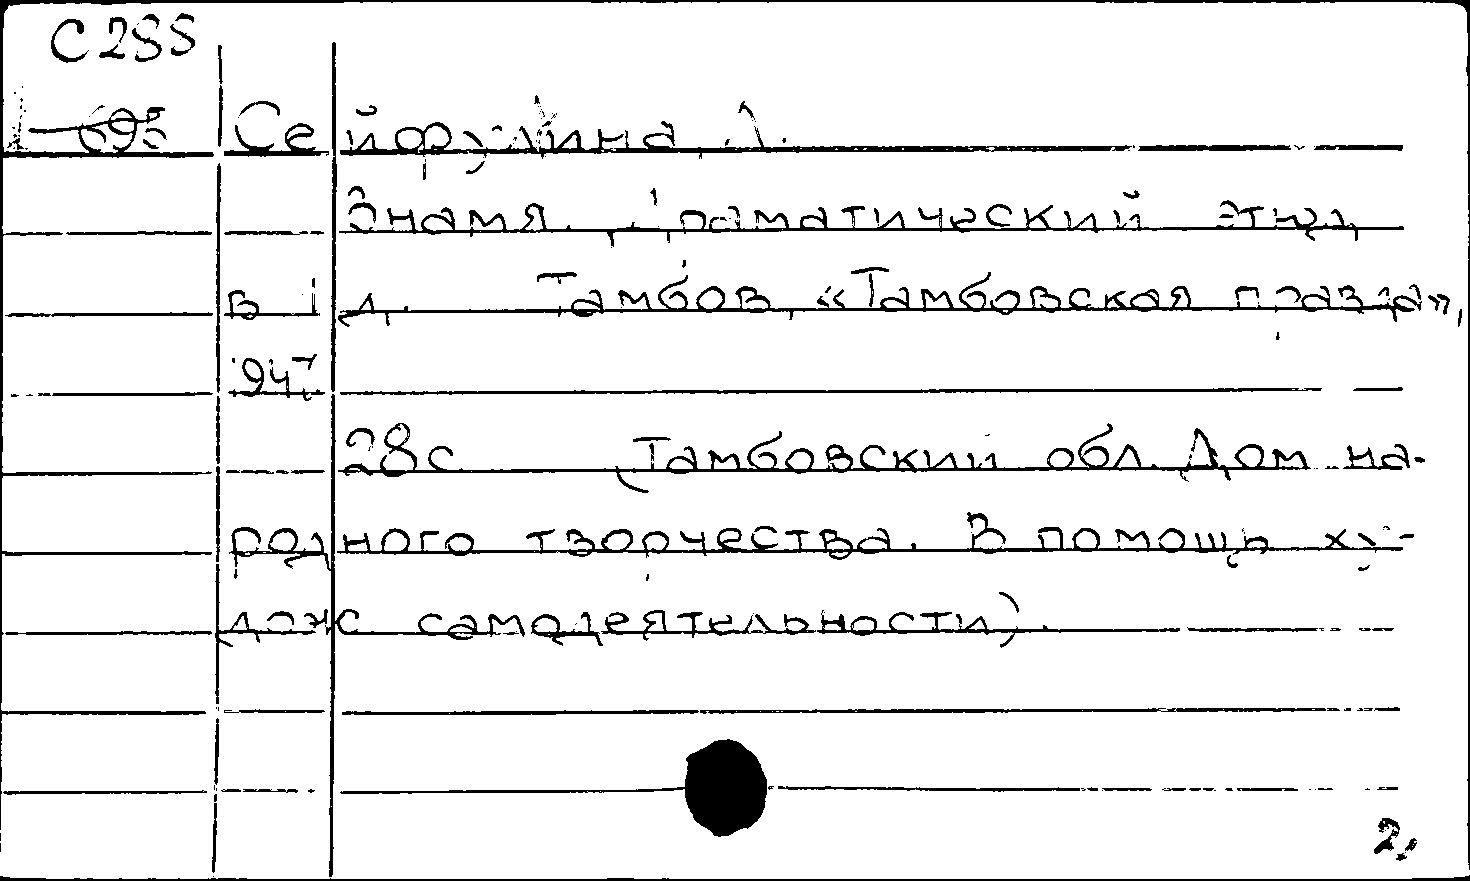 С 255
Сейфулина, Л.
Знамя. Драматический этюд
в 1 д. Тамбов, «Тамбовская правда»,
947
28с (Тамбовский обл. Дом на-
родного творчества. В помощь ху-
дож самодеятельности).
2.